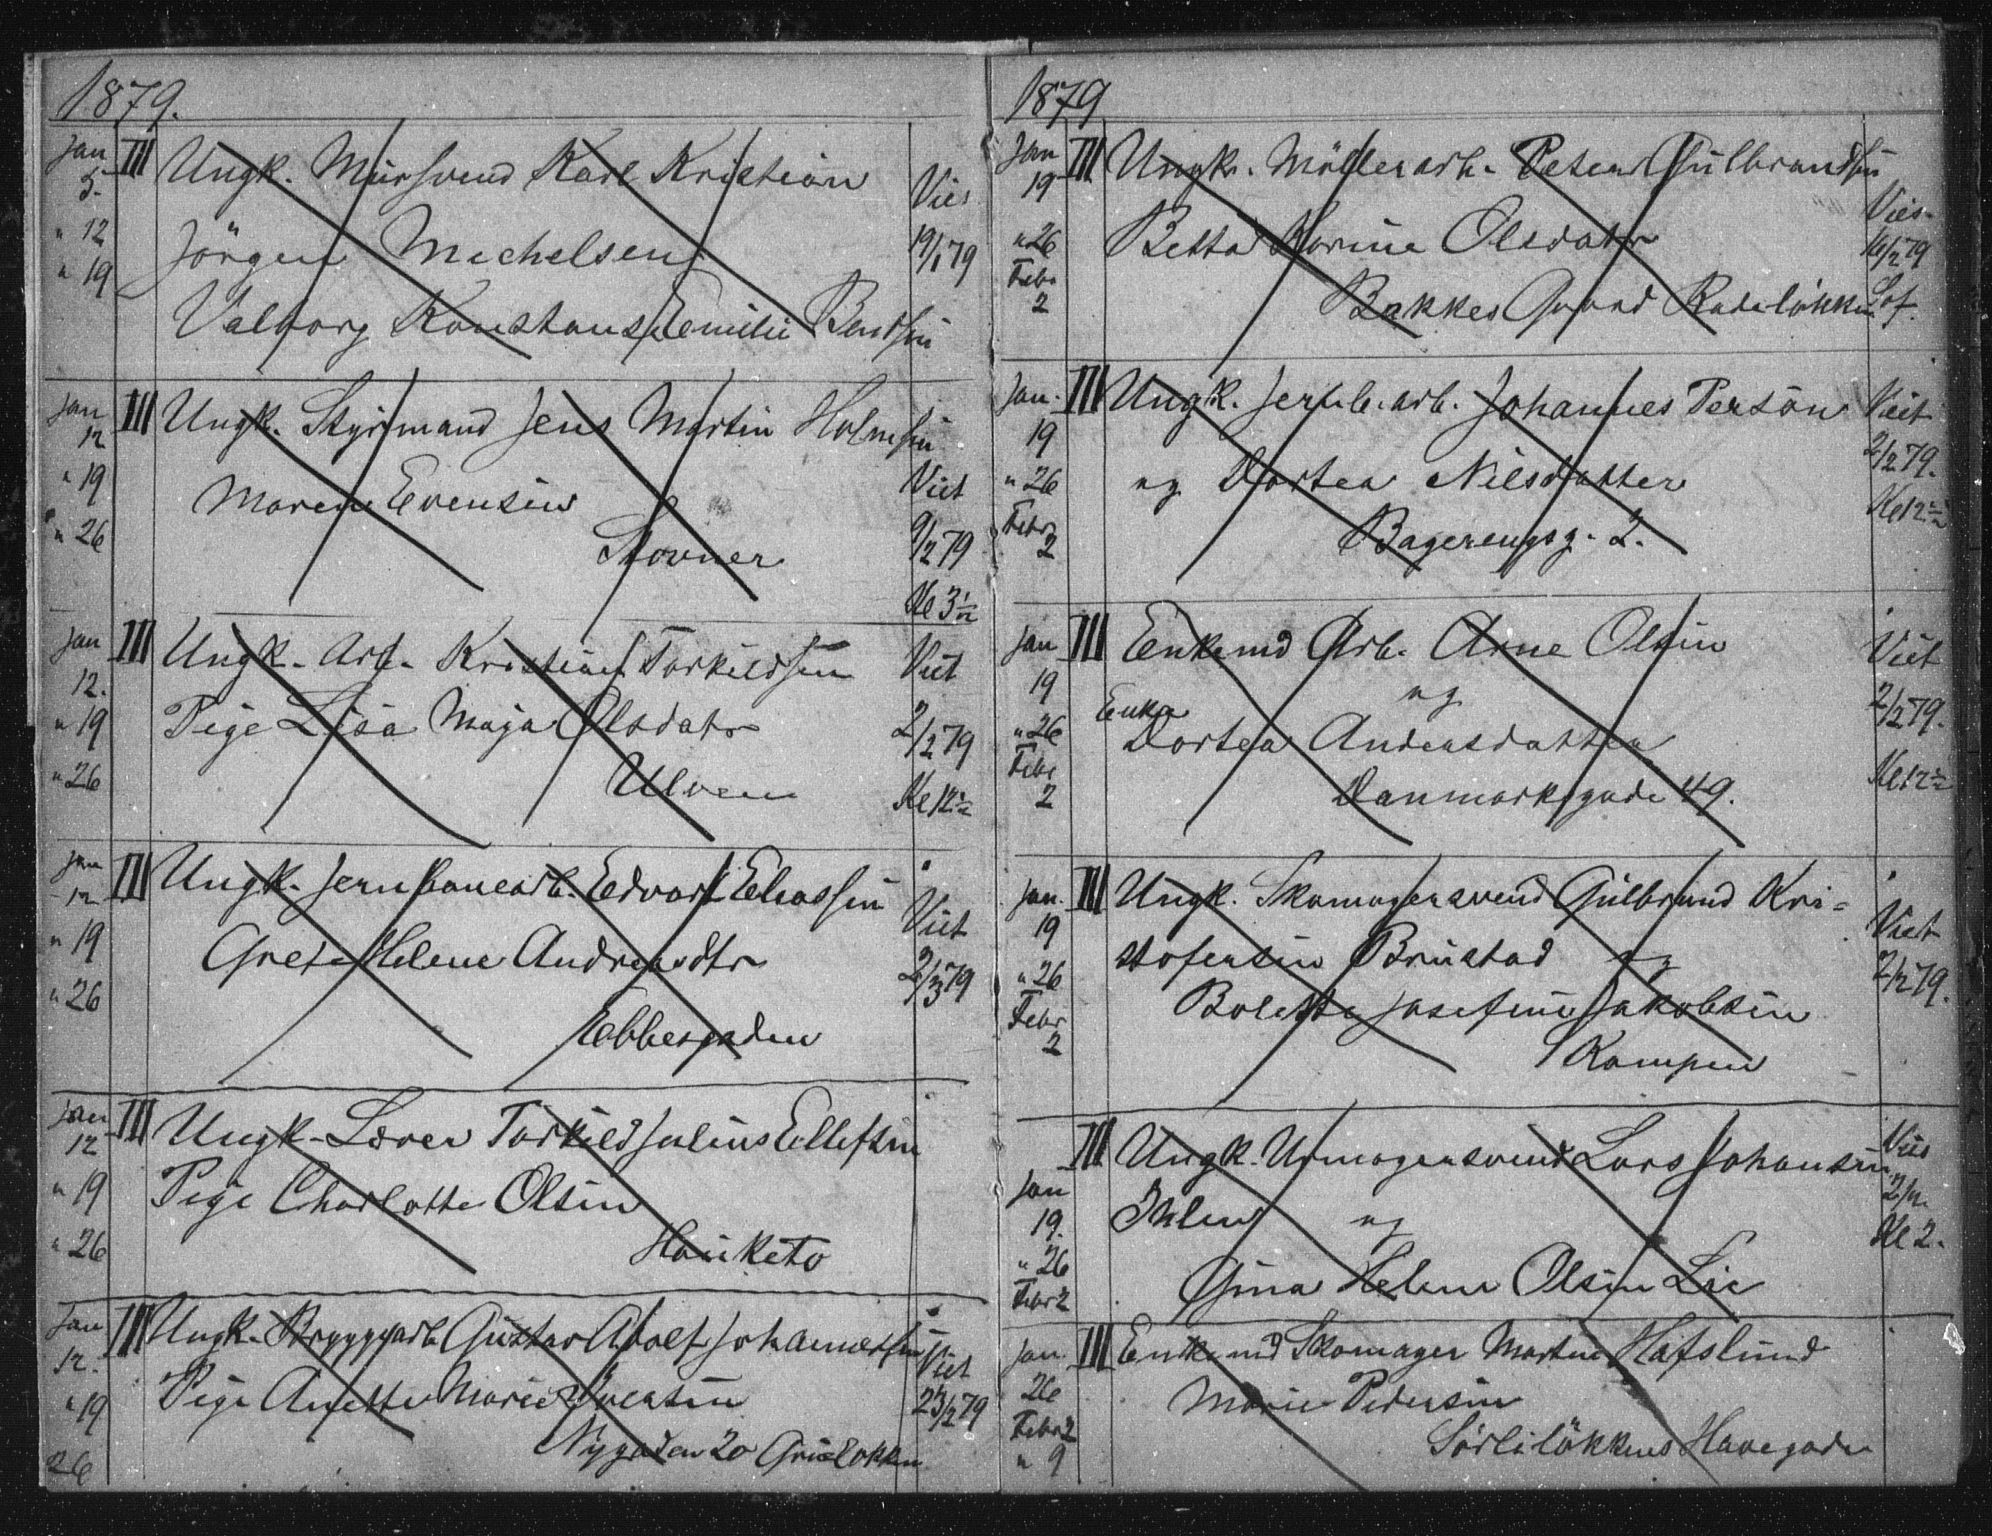 1879.
Jan III Ungk. Mursvend Karl Kristian
5. Viet
" 12 Jörgen Michelsen 19/1 79
" 19
Valborg Konstanse Emilie Bendsen
Jan III Ungk. Styrmand Jens Martin Holmsen
12
" 19 Maren Evensen Viet
" 26 Stovner 9/2 79
Kl 3½
Jan III Ungk. Arb. Kristian Torkildsen Viet
12.
" 19 Pige Lisa Maja Olsdatr 2/2 79
" 26 Ulven Kl 12½
Jan III Ungk. Jernbanearb. Edvart Eliassen
12 Viet
" 19 Grete Helene Andreasdtr 2/3 79
" 26 Ebbesgaden
Jan III Ungk. Lærer Torkild Julius Ellefsen
12
" 19 Pige Charlotte Olsen
" 26 Hauketo
Jan III Ungk. Bryggarb Gustav Adolf Johannessen
12. Viet
" 19 Pige Anette Marie 23/2 79
26 Nygaden 20 Grünlökken
1879
Jan III Ungk. Möllerarb. Peter Gulbrandsen
19 Viet
" 26 Betta Karine Olsdatr 16/2 79
Febr
2 Bakkes Gaard Rodelökken
Jan. III Ungk. Jernb. arb. Johannes Persön Viet
19 2/2 79.
" 26 og Dortea Nilsdatter Kl 12½
Febr
2 Bagerengsg. 2.
Jan III Enkemd Arb. Arne Olsen Viet
19 og
Enke 2/2 79.
" 26 Dortea Andersdatter
Febr
2 Danmarksgade 49. Kl 12½
Jan. III Ungk. Skomagersvend Gulbrand Kri=
19 Viet
" 26 stofersen Brustad og 2/2 79.
Febr Bolette Josefine Jakobsen
2 Kampen
III Ungk. Urmagersvend Lars Johansen Viet
Jan
19. Ihlen og Kl 2.
" 26
Febr 2 Gina Helene Olsen Lie
Jan III Enkemd Skomager Martin Hafslund
26 Marie Pedersen
Febr 2
" 9 Sörlilökkens Havegade